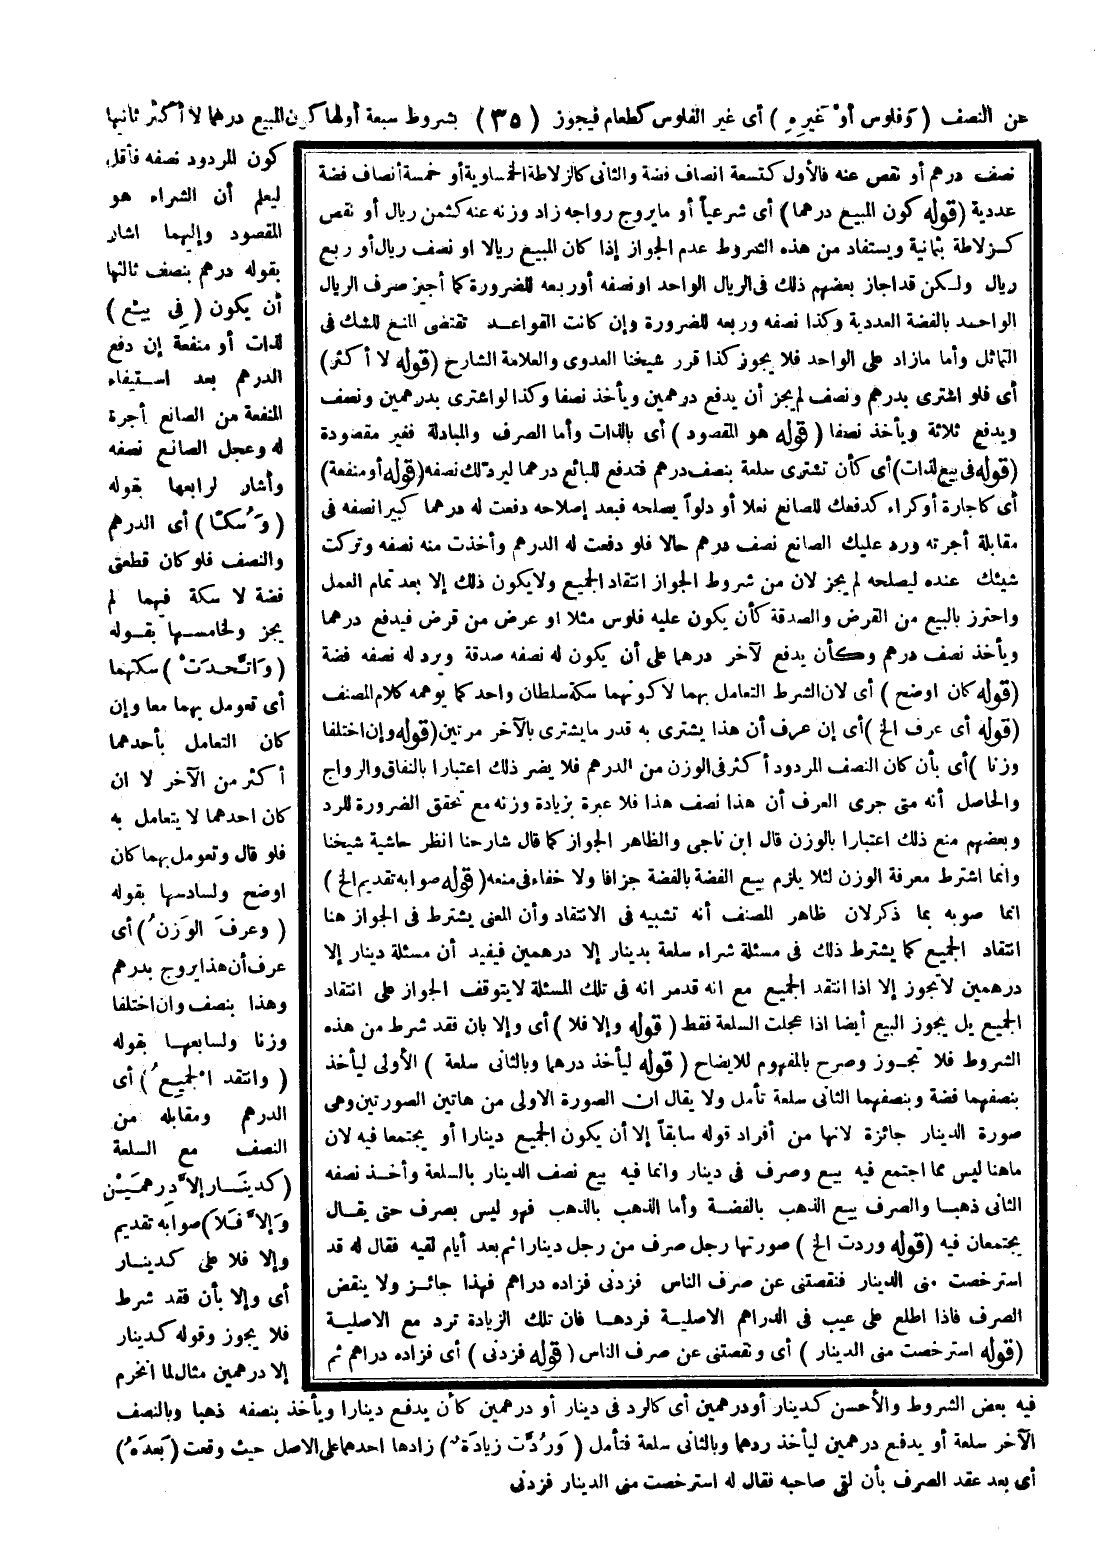 عن النصف (وَفلوس أوْ غَيرِهِ) أى غير الفلوس كطعام فيجوز (٣٥) بشروط سبعة أولها كون المبيع درهما لا أكثر ثانيها
كون المردود نصفه فأقل
ليعلم أن الشراء هو
المقصود وإليهما اشار
بقوله درهم بنصف ثالثها
أن يكون (فى بيْع)
لذات أو منفعة إن دفع
الدرهم بعد استيفاء
المنفعة من الصانع أجرة
له وعجل الصانع نصفه
وأشار لرابعها بقوله
(وَسُكّا) أى الدرهم
والنصف فلو كان قطعتى
فضة لا سكة فيهما لم
يجز ولخامسها بقوله
(وَاتَّحدَتْ) سكتهما
أى تعومل بهما معا وإن
كان التعامل بأحدهما
أكثر من الآخر لا ان
كان احدهما لا يتعامل به
فلو قال وتعومل بهما كان
اوضح ولسادسها بقوله
(وعرفَ الوَزنُ) أى
عرف أن هذا يروج بدرهم
وهذا بنصف وان اختلفا
وزنا ولسابعها بقوله
(وانتقد الْجَمِيعُ) أى
الدرهم ومقابله من
النصف مع السلعة
(كدينَار إلاَّ دِرهَميْن
وَإلاَّ فَلاَ) صوابه تقديم
وإلا فلا على كدينار
أى وإلا بأن فقد شرط
فلا يجوز وقوله كدينار
إلا درهمين مثال لما انخرم
نصف درهم أو نقص عنه فالأول كتسعة انصاف فضة والثانى كالزلاطة الخمساوية أو خمسة أنصاف فضة
عددية (قوله كون المبيع درهما) أى شرعيا أو ما يروج رواجه زاد وزنه عنه كثمن ريال أو نقص
كزلاطة بثمانية ويستفاد من هذه الشروط عدم الجواز إذا كان المبيع ريالا او نصف ريال أو ربع
ريال ولكن قد اجاز بعضهم ذلك فى الريال الواحد او نصفه أو ربعه للضرورة كما أجيز صرف الريال
الواحد بالفضة العددية وكذا نصفه وربعه للضرورة وإن كانت القواعد تقتضى المنع للشك فى
التماثل وأما مازاد على الواحد فلا يجوز كذا قرر شيخنا العدوى والعلامة الشارح (قوله لا أكثر)
أى فلو اشترى بدرهم ونصف لم يجز أن يدفع درهمين ويأخذ نصفا وكذا لو اشترى بدرهمين ونصف
ويدفع ثلاثة ويأخذ نصفا (قوله هو المقصود) أى بالذات وأما الصرف والمبادلة فغير مقصودة
(قوله فى بيع لذات) أى كأن تشترى سلعة بنصف درهم فتدفع للبائع درهما ليرد لك نصفه (قوله أو منفعة)
أى كاجارة أو كراء كدفعك للصانع نعلا أو دلوا يصلحه فبعد إصلاحه دفعت له درهما كبيرا نصفه فى
مقابلة أجرته ورد عليك الصانع نصف درهم حالا فلو دفعت له الدرهم وأخذت منه نصفه وتركت
شيئك عنده ليصلحه لم يجز لان من شروط الجواز انتقاد الجميع ولا يكون ذلك إلا بعد تمام العمل
واحترز بالبيع من القرض والصدقة كأن يكون عليه فلوس مثلا او عرض من قرض فيدفع درهما
ويأخذ نصف درهم وكأن يدفع لآخر درهما على أن يكون له نصفه صدقة ويرد له نصفه فضة
(قوله كان اوضح) أى لان الشرط التعامل بهما لا كونهما سكة سلطان واحد كما يوهمه كلام المصنف
(قوله أى عرف الخ) أى إن عرف أن هذا يشترى به قدر ما يشترى بالآخر مرتين (قوله وإن اختلفا
وزنا) أى بأن كان النصف المردود أكثر فى الوزن من الدرهم فلا يضر ذلك اعتبارا بالنفاق والرواج
والحاصل أنه متى جرى العرف أن هذا نصف هذا فلا عبرة بزيادة وزنه مع تحقق الضرورة للرد
وبعضهم منع ذلك اعتبارا بالوزن قال ابن ناجى والظاهر الجواز كما قال شارحنا انظر حاشية شيخنا
وانما اشترط معرفة الوزن لئلا يلزم بيع الفضة بالفضة جزافا ولا خفاء فى منعه (قوله صوابه تقديم الخ)
انما صوبه بما ذكر لان ظاهر المصنف أنه تشبيه فى الانتقاد وأن المعنى يشترط فى الجواز هنا
انتقاد الجميع كما يشترط ذلك فى مسئلة شراء سلعة بدينار إلا درهمين فيفيد أن مسئلة دينار إلا
درهمين لا تجوز إلا اذا انتقد الجميع مع انه قد مر انه فى تلك المسئلة لا يتوقف الجواز على انتقاد
الجميع بل يجوز البيع أيضا اذا عجلت السلعة فقط (قوله وإلا فلا) أى وإلا بان فقد شرط من هذه
الشروط فلا تجوز وصرح بالمفهوم للايضاح (قوله ليأخذ درهما وبالثانى سلعة) الأولى ليأخذ
بنصفهما فضة وبنصفهما الثانى سلعة تأمل ولا يقال ان الصورة الاولى من هاتين الصورتين وهى
صورة الدينار جائزة لانها من أفراد قوله سابقا إلا أن يكون الجميع دينارا أو يجتمعا فيه لان
ما هنا ليس مما اجتمع فيه بيع وصرف فى دينار وانما فيه بيع نصف الدينار بالسلعة وأخذ نصفه
الثانى ذهبا والصرف بيع الذهب بالفضة وأما الذهب بالذهب فهو ليس بصرف حتى يقال
يجتمعان فيه (قوله وردت الخ) صورتها رجل صرف من رجل دينارا ثم بعد أيام لقيه فقال له قد
استرخصت منى الدينار فنقصتنى عن صرف الناس فزدنى فزاده دراهم فهذا جائز ولا ينقض
الصرف فاذا اطلع على عيب فى الدراهم الاصلية فردها فان تلك الزيادة ترد مع الاصلية
(قوله استرخصت منى الدينار) أى ونقصتنى عن صرف الناس (قوله فزدنى) أى فزاده دراهم ثم
فيه بعض الشروط والأحسن كدينار أو درهمين أى كالرد فى دينار أو درهمين كأن يدفع دينارا ويأخذ بنصفه ذهبا وبالنصف
الآخر سلعة أو يدفع درهمين ليأخذ ردهما وبالثانى سلعة فتأمل (وَرُدَّت زيادَةٌ) زادها احدهما على الاصل حيث وقعت (بَعدَهُ)
أى بعد عقد الصرف بأن لقى صاحبه فقال له استرخصت منى الدينار فزدنى